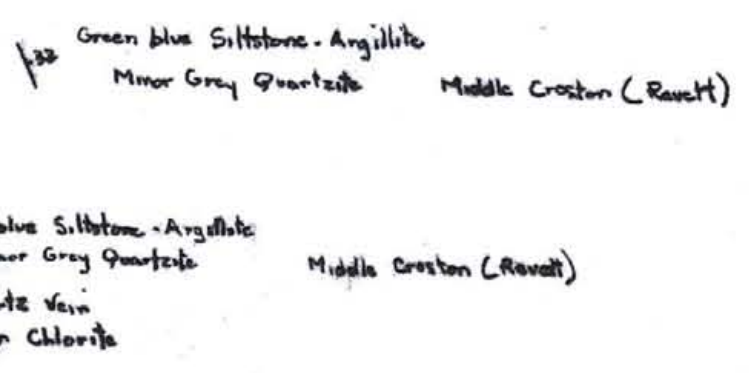 33
Green blue Siltstone - Argillite
Minor Grey Quartzite Middle Creston (Ravett)
blue Siltstone - Argillite
nor Grey Quartzite Middle Creston (Ravett)
tz Vein
n Chlorite